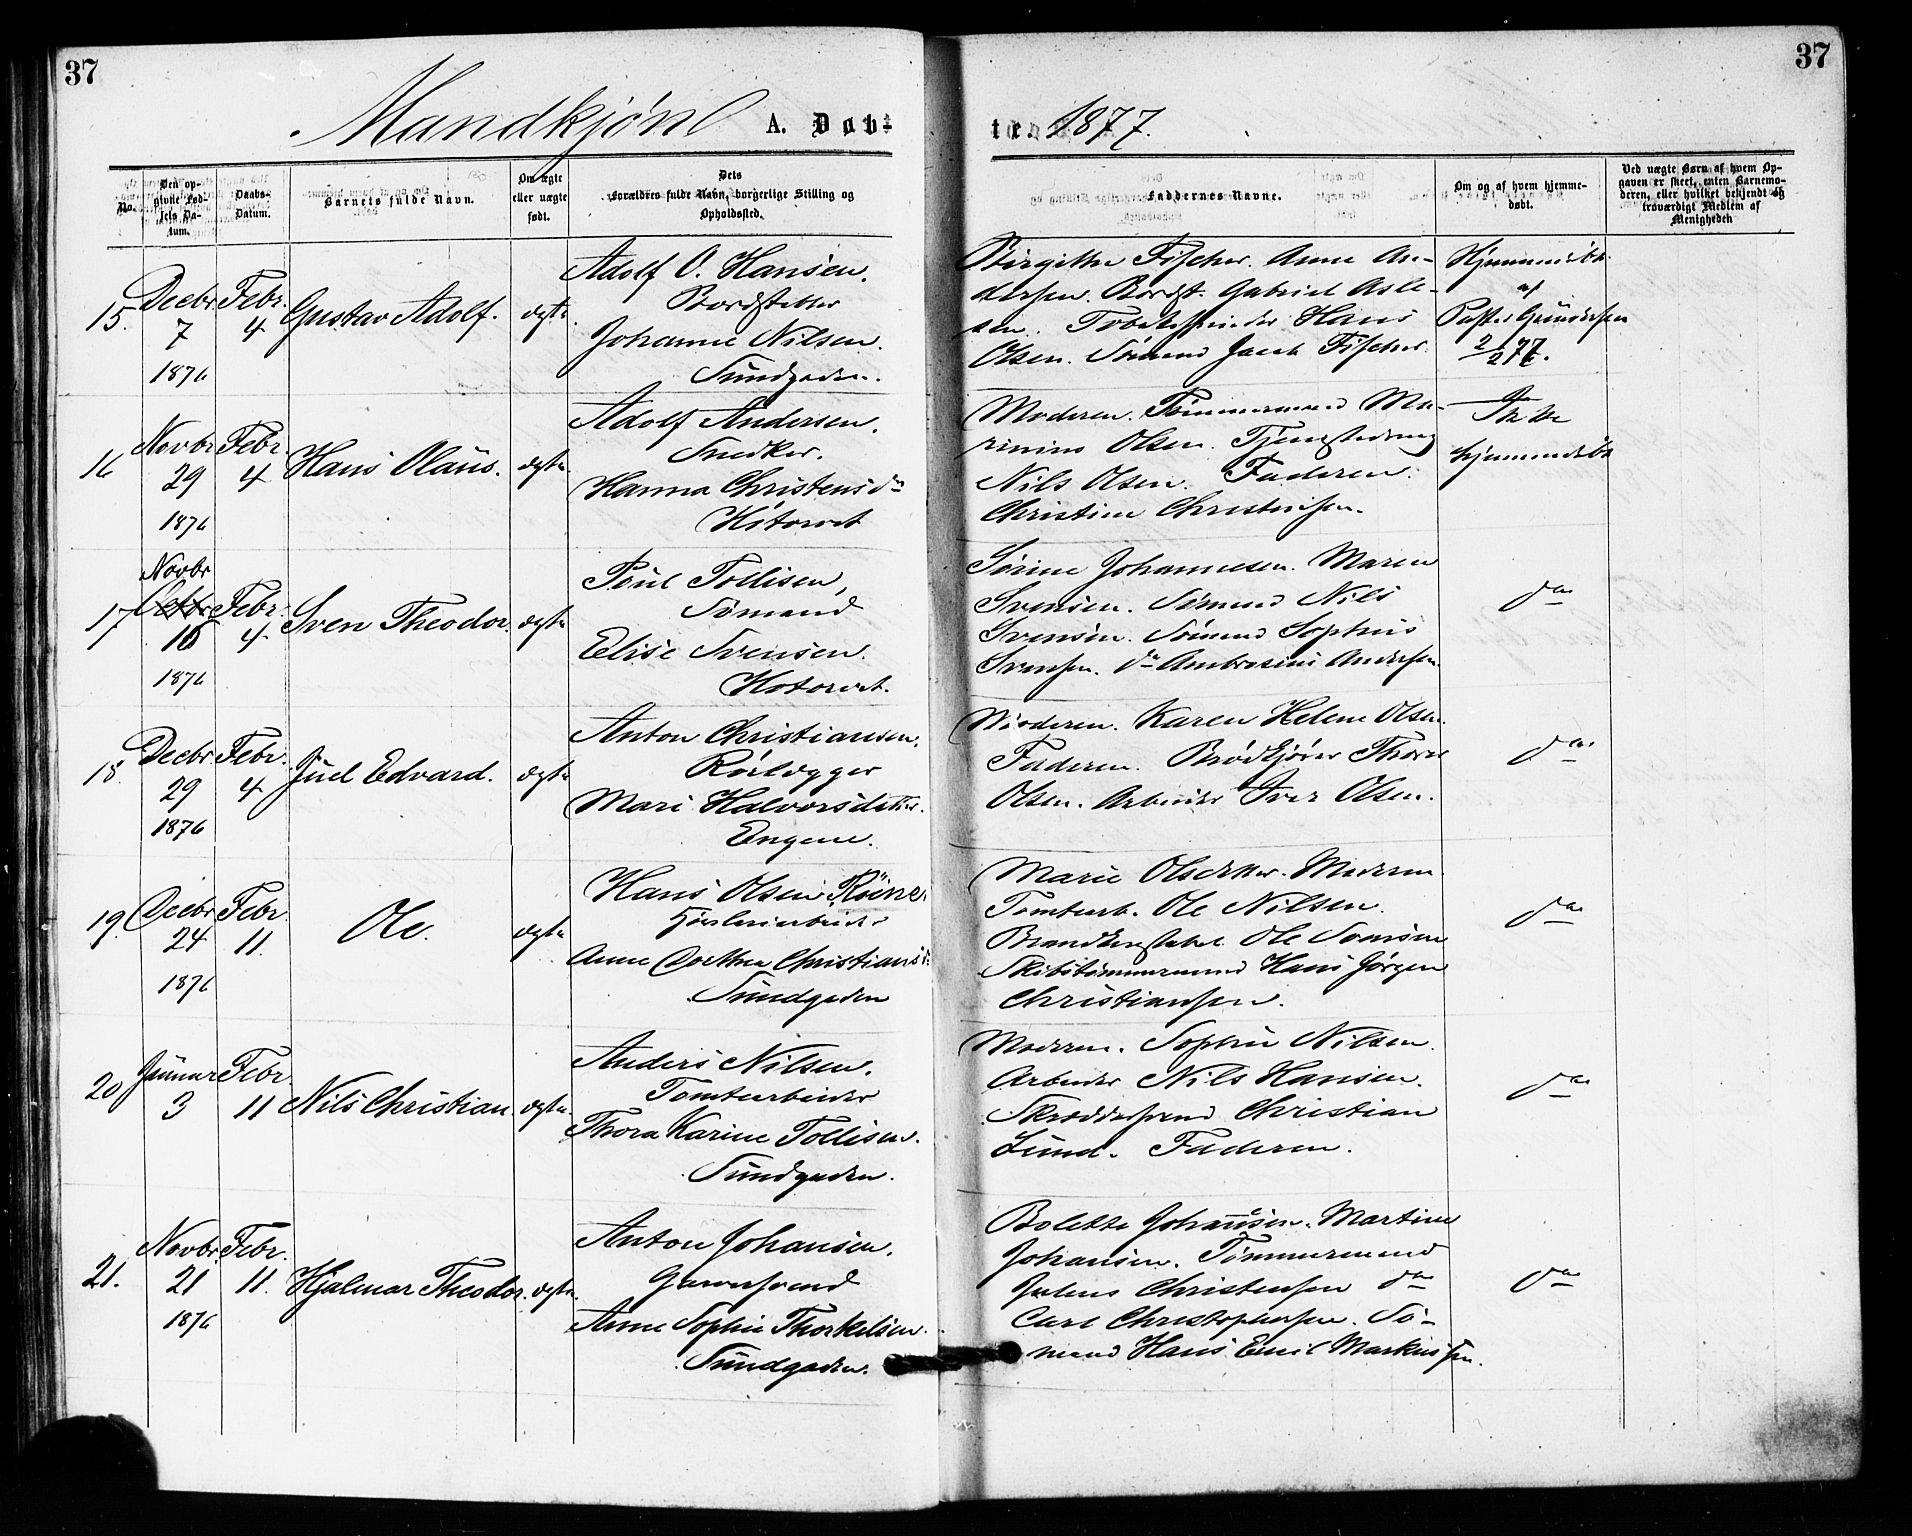 37
37
Mandkjøn A. Døb-
te. 1877.
No.
Den op-
givne Fød-
sels Da-
tum.
Daabs-
Datum.
Barnets fulde Navn.
Om ægte
eller uægte
født.
Dets
Forældres fulde Navn, borgerlige Stilling og
Opholdssted.
Faddernes Navne.
Om og af hvem hjemme-
døbt.
Ved uægte Børn af hvem Op-
gaven er skeet, enten Barnemo-
deren, eller hvilket bekjendt og
troværdigt Medlem af
Menigheden
15.
Decbr
7
1876
Febr.
4
Gustav Adolf.
ægte.
Adolf O. Hansen.
Johanne Nilsen.
Sundgaden.
Birgithe Fischer. Anne An-
dersen. Gabriel Asle-
sen. Hans
Olsen. Sømand Jacob Fischer.
Hjemmedøbt
af
Pastor Gundersen
2/2 77.
16
Novbr
29
1876
Febr.
4
Hans Olaus.
ægte
Adolf Andersen.
Snedker.
Hanna Christensdr
Køtorvet
Moderen. Tømmermand Ma-
rinius Olsen.
Nils Olsen. Faderen.
Christine Christensen.
Ikke
hjemmedøbt
17
Novbr
Octbr
16
1876
Febr.
4
Sven Theodor.
ægte
Poul Tollisen,
Sømand
Elise Svensen.
Køtorvet.
Sørine Johannesen. Maren
Svensen. Sømand Nils
Svensen. Sømand Sophus
Svensen. do Ambrosius Andersen.
do
18.
Decbr
29
1876
Febr.
4
Juel Edvard.
ægte
Anton Christiansen.
Rørlægger
Mari Halvorsdatter.
Engene.
Moderen. Karen Helene Olsen.
Faderen. Brødkjører Thorer
Olsen. Arbeider Iver Olsen.
do
19.
Decbr
24
1876
Febr.
11.
Ole.
ægte
Hans Olsen
Anne Dorthea Christiansdr
Sundgaden
Marie Olsdtter. Moderen.
Tomtearb. Ole Nilsen.
Brandkonstabel Ole Svensen
Skibstømmermand Hans Jørgen
Christiansen.
do
20
Januar
3
Febr.
11
Nils Christian.
ægte
Anders Nilsen.
Tomtearbeider
Thora Karine Tollisen.
Sundgaden.
Moderen. Sophie Nilsen.
Arbeider Nils Hansen.
Skræddersvend Christian
Lund. Faderen.
do
21.
Novbr.
21
1876
Febr.
11.
Hjalmar Theodor.
ægte.
Anton Johansen.
Garversvend
Anne Sophie Thorkelsen.
Sundgaden.
Bolette Johansen. Martine
Johansen. Tømmermand
Julius Christensen do
Carl Christophersen. Sø-
mand Hans Emil Markussen.
do